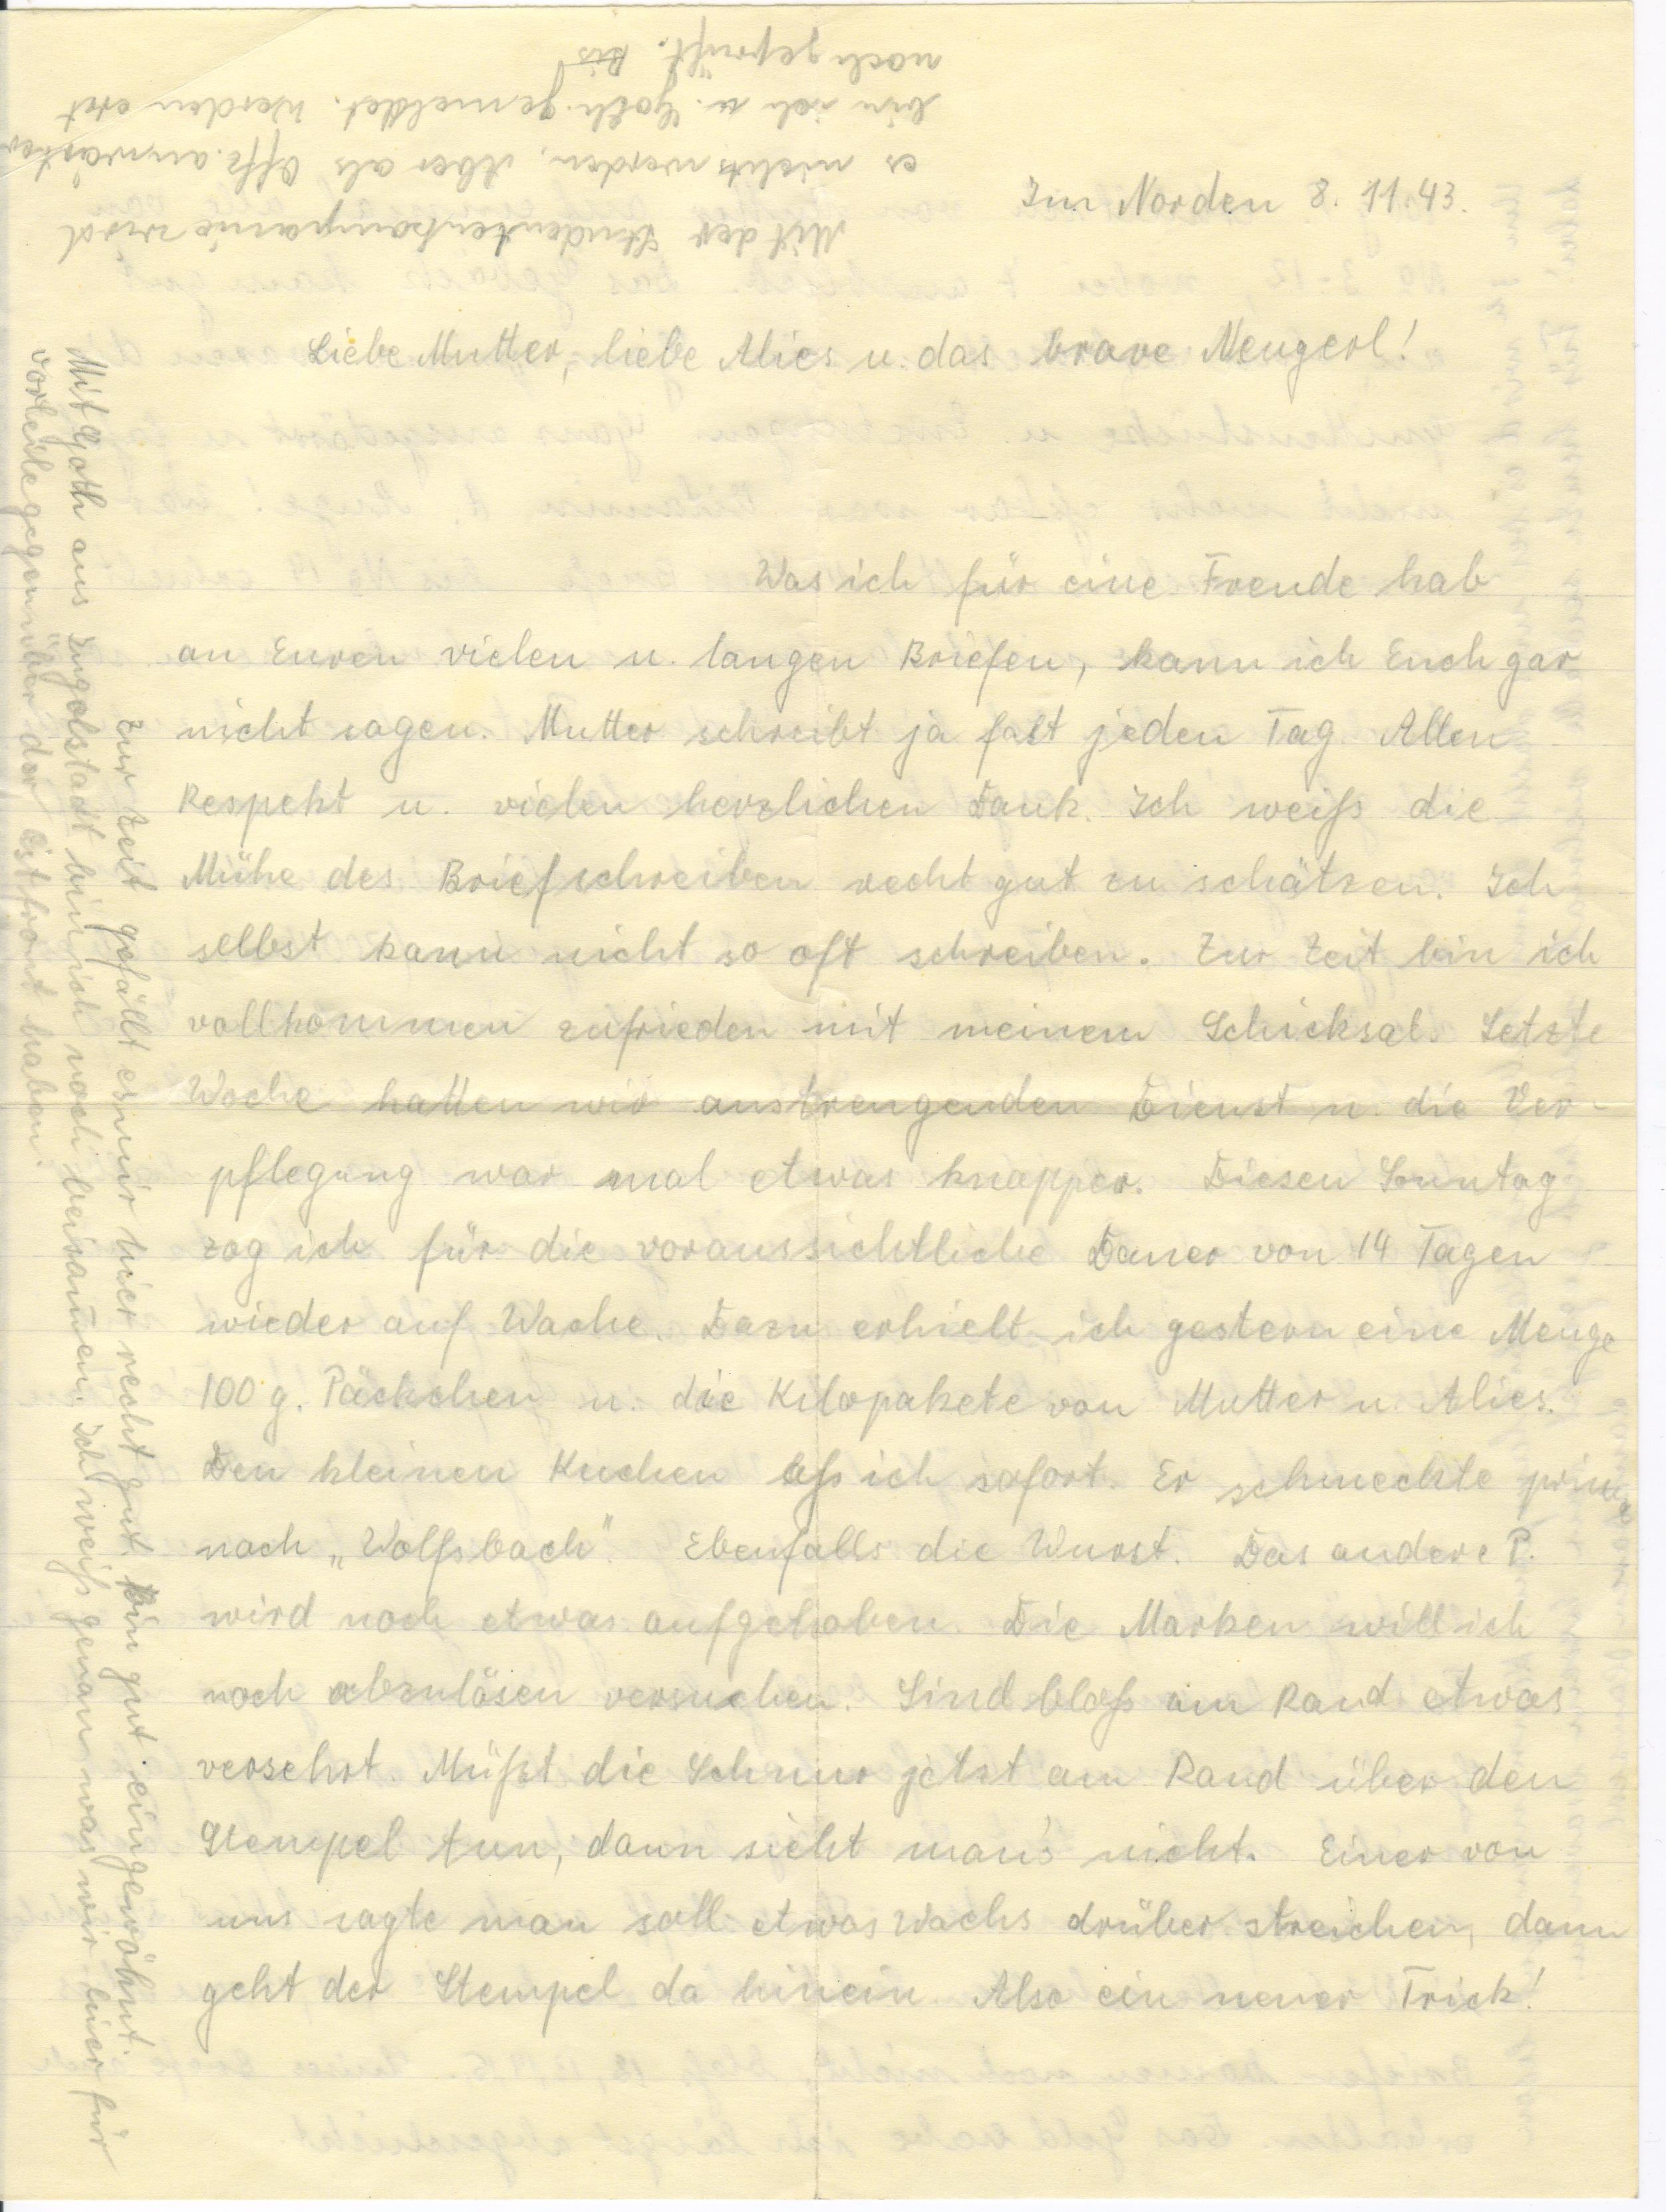 Im Norden 8. 11. 43.
Liebe Mutter, liebe Alies u. das brave Mengerl!
Was ich für eine Freude hab
an Euren vielen u. langen Briefen, kann ich Euch gar
nicht sagen. Mutter schreibt ja fast jeden Tag. Allen
Respekt u. vielen herzlichen Dank. Ich weiß die
Mühe des Briefschreiben recht gut zu schätzen. Ich
selbst kann nicht so oft schreiben. Zur Zeit bin ich
vollkommen zufrieden mit meinem Schicksal. Letzte
Woche hatten wir anstrengenden Dienst u. die Ver-
pflegung war mal etwas knapper. Diesen Sonntag
zog ich für die voraussichtliche Dauer von 14 Tagen
wieder auf Wache. Dazu erhielt ich gestern eine Menge
100 g. Päckchen u. die Kilopakete von Mutter u. Alies.
Den kleinen Kuchen aß ich sofort. Er schmeckte prima
nach „Wolfsbach". Ebenfalls die Wurst. Das andere P.
wird noch etwas aufgehoben. Die Marken will ich
noch abzulösen versuchen. Sind bloß am Rand etwas
versehrt. Müßt die Schnur jetzt am Rand über den
Stempel tun, dann sieht man's nicht. Einer von
uns sagte man soll etwas Wachs drüber streichen, dann
geht der Stempel da hinein. Also ein neuer Trick!
Zur Zeit gefällt es mir hier recht gut. Bin gut eingewöhnt.
Mit Goth aus Ingolstadt bin ich noch beisam̄en. Ich weiß genau was wir hier für
Vorteile gegenüber der Ostfront haben.
Mit der Studentenkompanie wird
es nichts werden. Aber als Offz. anwärter
bin ich u. Goth gemeldet. Werden erst
noch geprüft. Bis